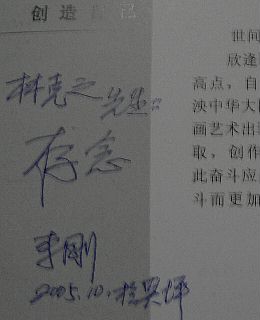 创造自己
林克之先生:
存念
李刚
2005.10.
世间
欣逢
高点，自
泱中华大
画艺术出
取，创作
此奋斗应
斗而更加